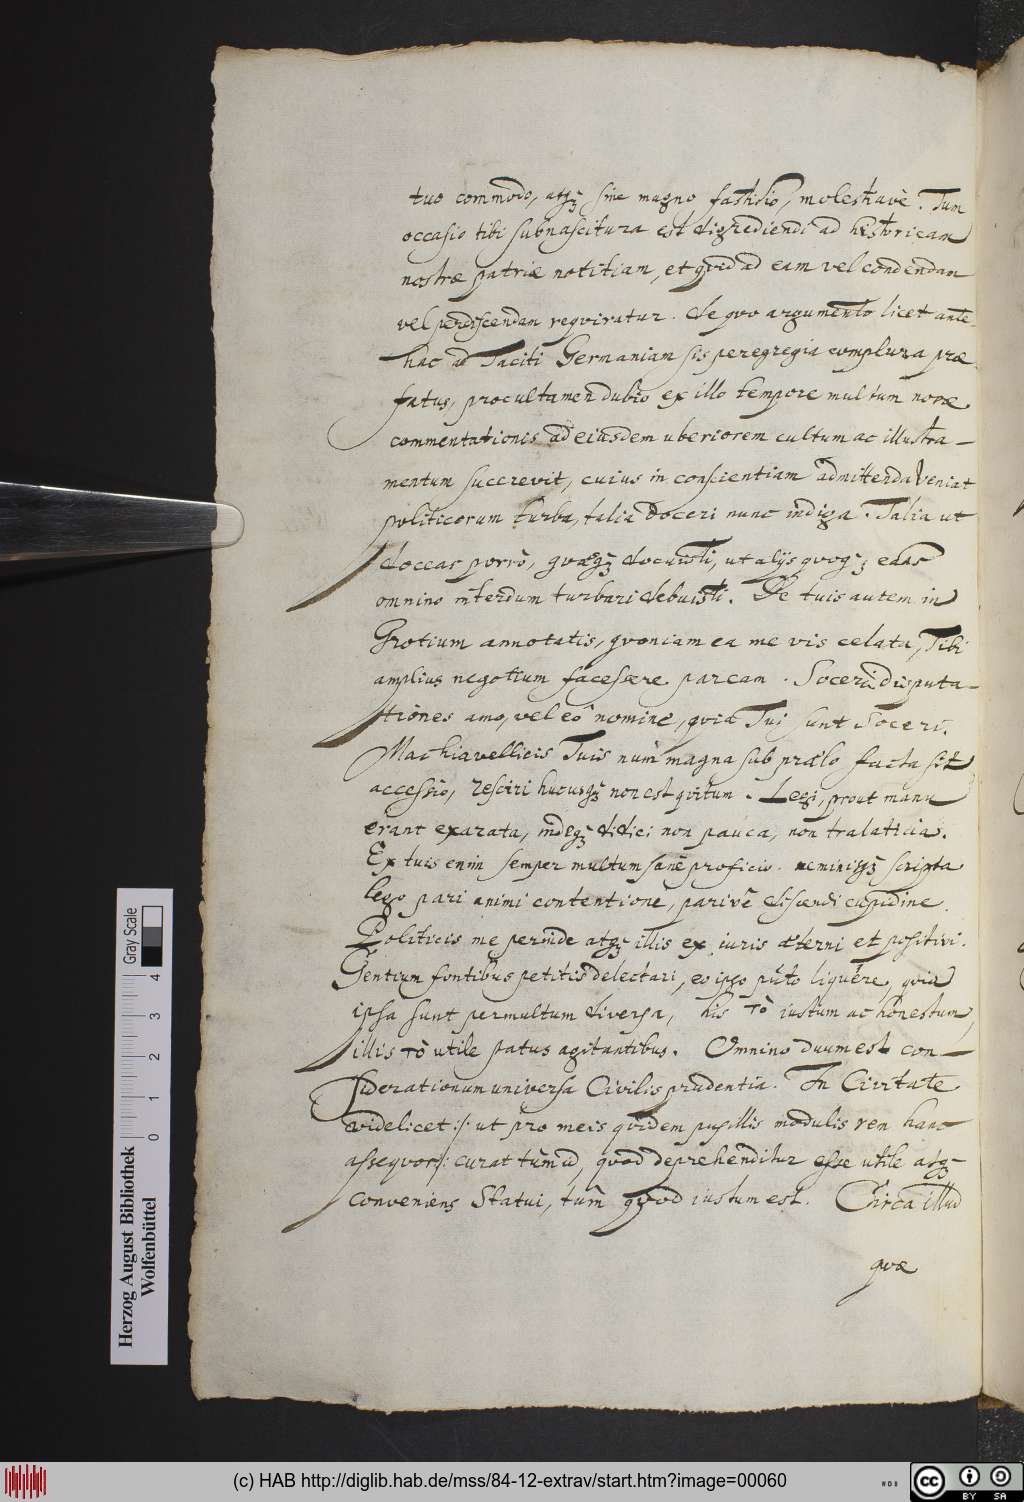 tuo commodo, atqꝫ sine magno fastidio, molestiave. Tum
occasio tibi subnascitura est digrediendi ad historicam
nostræ patriæ notitiam, et qvid ad eam vel condendam
vel perdiscendam reqviratur. de qvo argumento licet ante-
hac ad Taciti Germaniam sis peregregia complura præ-
fatus, procul tamen dubio ex illo tempore multum novæ
commentationis ad eiusdem uberiorem cultum ac illustra-
mentum succrevit, cuius in conscientiam admittenda veniat
politicorum turba, talia doceri nunc indiga. Talia ut
doceas porrò, qvæqꝫ docuisti, ut alijs qvoqꝫ edas
omnino interdum turbari debuisti. De tuis autem in
Grotium annotatis, qvoniam ea me vis celatu, Tibi
amplius negotium facessere parcam. Soceri disputa-
tiones amo, vel eô nomine, qvia Tui sunt Soceri.
Machiavellicis Tuis num magna sub prælo facta sit
accessio, resciri hucusqꝫ non est qvitum. Legi, prout manu
erant exarata, indeqꝫ didici non pauca, non tralaticia.
Ex tuis enim semper multum sanè proficio. neminisqꝫ scripta
lego pari animi contentione, parivè discendi cupidine.
Politicis me perinde atqꝫ illis ex iuris æterni et positivi
Gentium fontibus petitis delectari, eo ipso puto liqvere, qvia
ipsa sunt permultum diversa, his τὸ iustum ac honestum,
illis τὸ utile patus agitantibus. Omnino duum est con-
siderationum universa Civilis prudentia. In Civitate
videlicet /: ut pro meis qvidem pusillis modulis rem hanc
asseqvor :/ curat tum id, qvod deprehenditur esse utile atqꝫ
conveniens Statui, tum qvod iustum est. Circa illud
qvæ
Herzog August Bibliothek
Wolfenbüttel
0 1 2 3 4
Gray Scale
(c) HAB http://diglib.hab.de/mss/84-12-extrav/start.htm?image=00060
cc BY SA